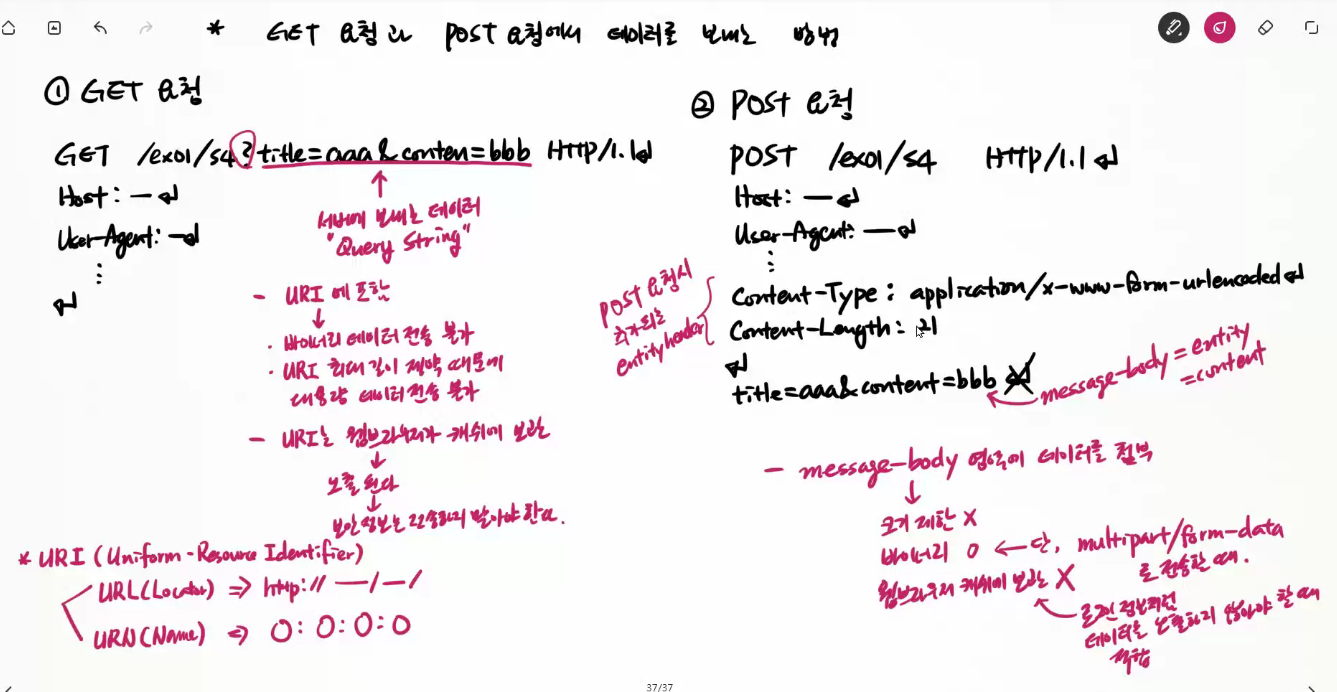 * GET 요청과 POST 요청에서 데이터를 보내는 방법
① GET 요청
GET /ex01/s4?title=aaa&conten=bbb HTTP/1.1↵
Host: — ↵
User-Agent: — ↵
⋮
↵
서버에 보내는 데이터
"Query String"
- URI에 포함
↓
· 바이너리 데이터 전송 불가
· URI 최대 길이 제약 때문에
대용량 데이터 전송 불가
- URI는 웹브라우저가 캐쉬에 보관
↓
노출된다
↓
보안정보는 전송하지 말아야 한다.
* URI (Uniform-Resource Identifier)
URL(Locator) ⇒ http:// —/—/
URN(Name) ⇒ O:O:O:O
② POST 요청
POST /ex01/s4 HTTP/1.1↵
Host: — ↵
User-Agent: — ↵
⋮
POST 요청시
추가되는
entity header
Content-Type: application/x-www-form-urlencoded↵
Content-Length: 21
↵
title=aaa&content=bbb ↵
message-body = entity
= content
- message-body 영역에 데이터를 첨부
↓
크기 제한 X
바이너리 O ← 단, multipart/form-data
로 전송할 때.
웹브라우저 캐쉬에 보관 X
로그인 정보처럼
데이터를 노출하지 않아야 할 때
적합
37/37